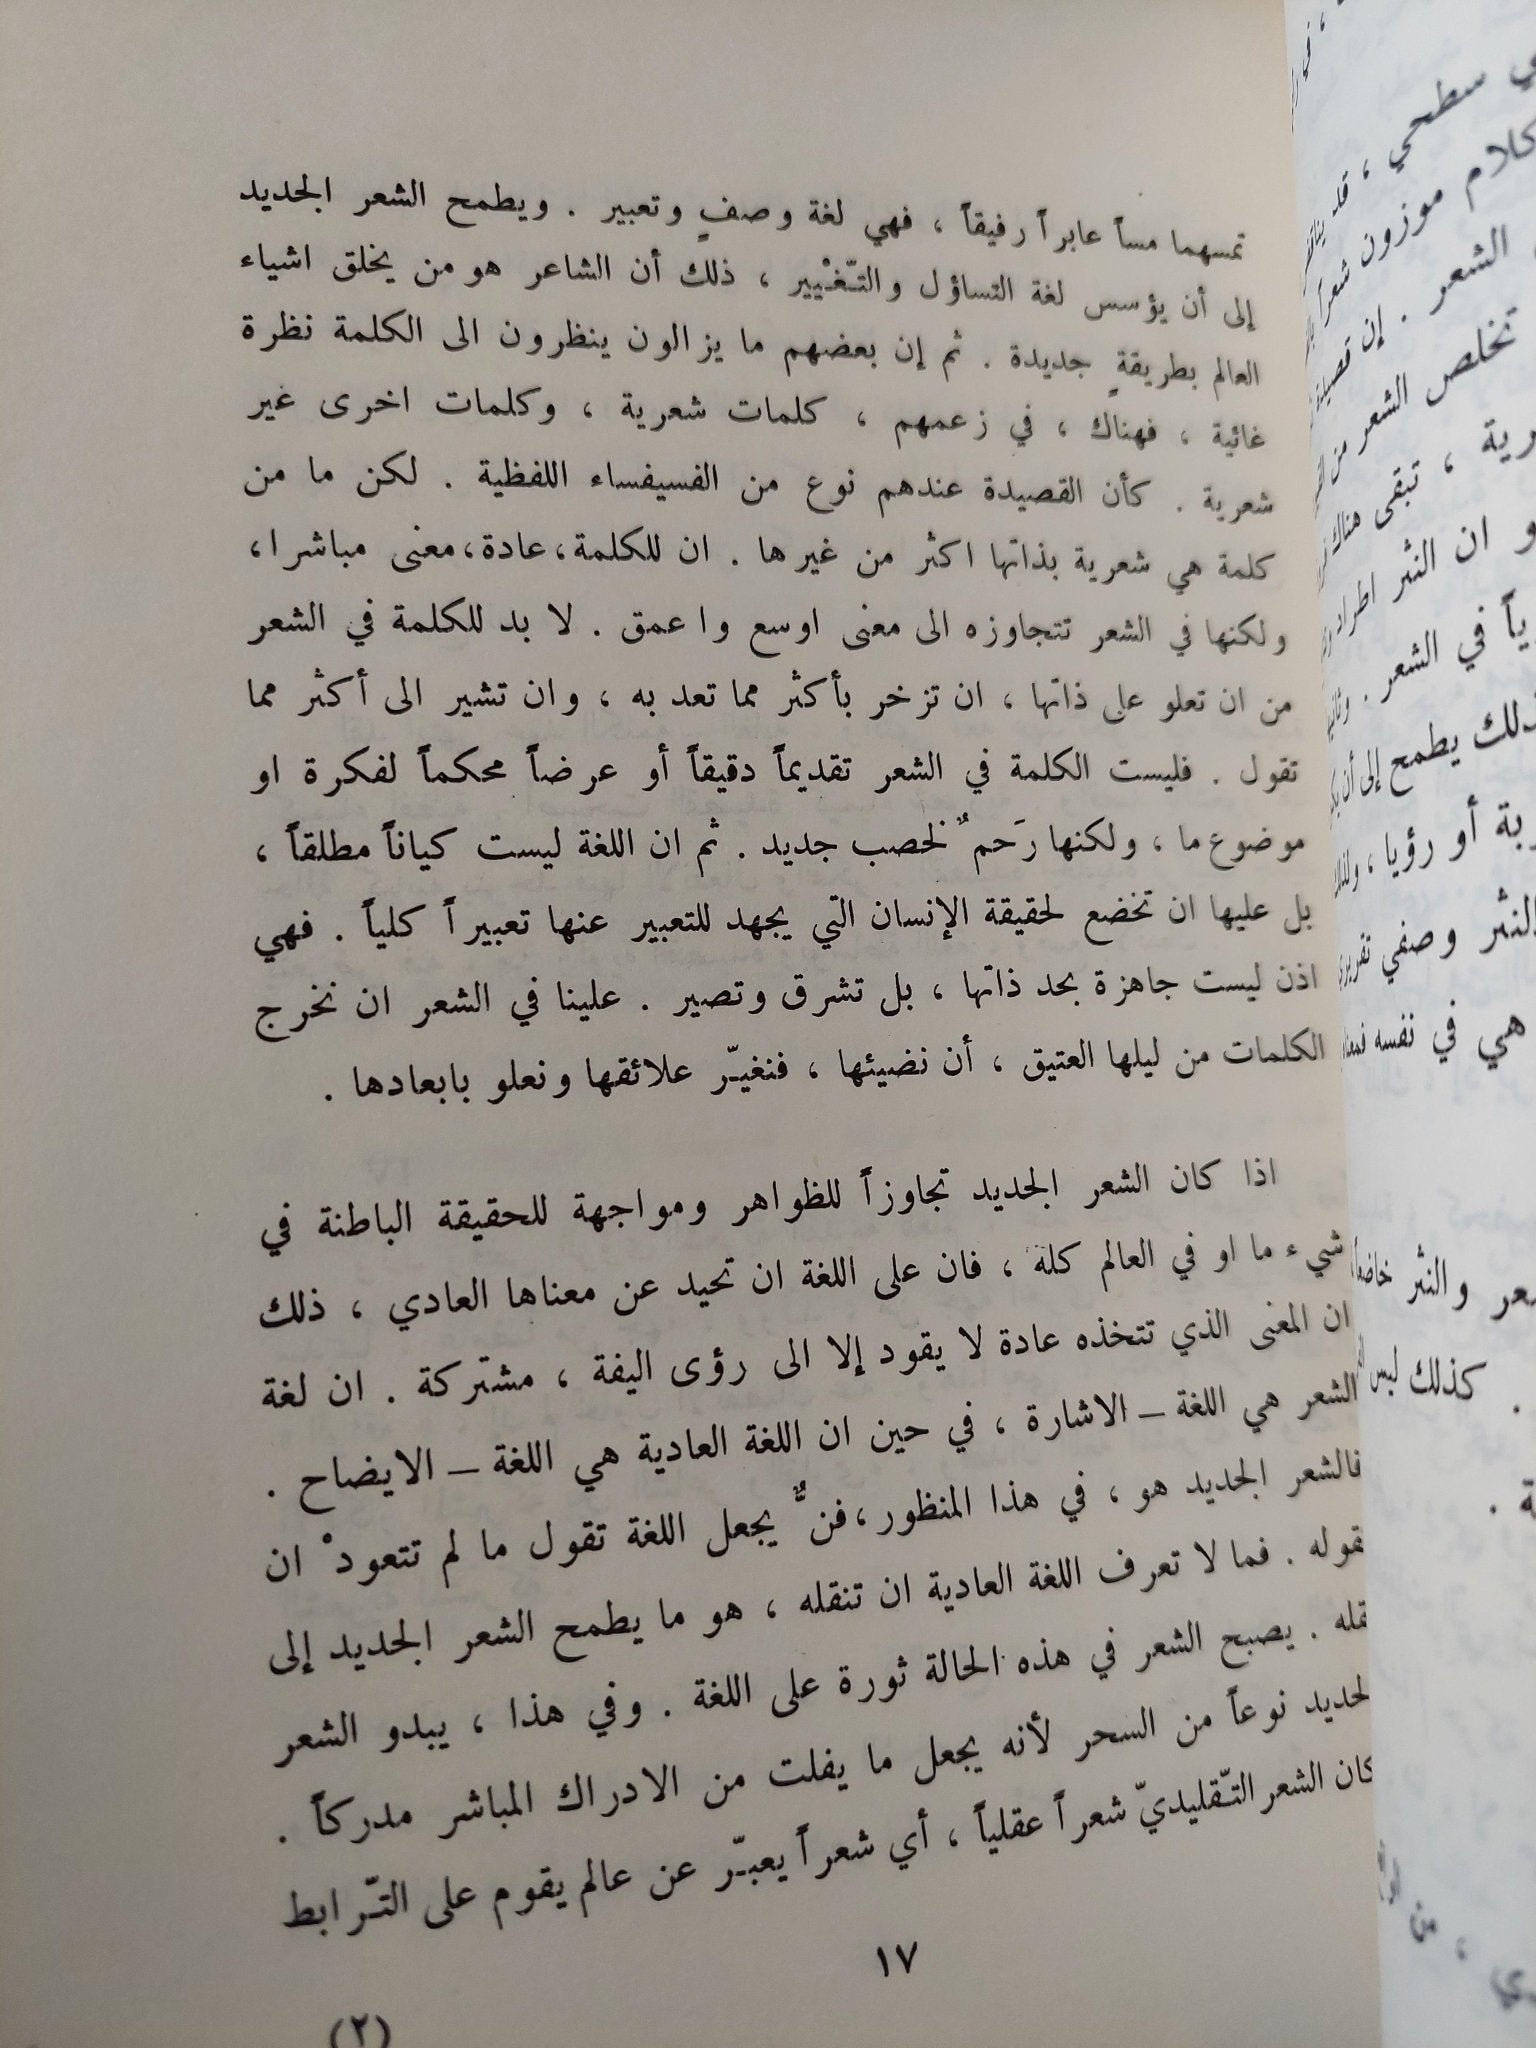 تمسهما مساً عابراً رفيقاً ، فهي لغة وصفٍ وتعبير . ويطمح الشعر الجديد
إلى أن يؤسس لغة التساؤل والتّغْيير ، ذلك أن الشاعر هو من يخلق اشياء
العالم بطريقةٍ جديدة . ثم إن بعضهم ما يزالون ينظرون الى الكلمة نظرة
غائية ، فهناك ، في زعمهم ، كلمات شعرية ، وكلمات اخرى غير
شعرية . كأن القصيدة عندهم نوع من الفسيفساء اللفظية . لكن ما من
كلمة هي شعرية بذاتها اكثر من غيرها . ان للكلمة،عادة،معنى مباشرا،
ولكنها في الشعر تتجاوزه الى معنى اوسع واعمق . لا بد للكلمة في الشعر
من ان تعلو على ذاتها ، ان تزخر بأكثر مما تعد به ، وان تشير الى أكثر مما
تقول . فليست الكلمة في الشعر تقديماً دقيقاً أو عرضاً محكماً لفكرة او
موضوع ما ، ولكنها رَحمٌ لخصب جديد . ثم ان اللغة ليست كياناً مطلقاً ،
بل عليها ان تخضع لحقيقة الإنسان التي يجهد للتعبير عنها تعبيراً كلياً . فهي
اذن ليست جاهزة بحد ذاتها ، بل تشرق وتصير . علينا في الشعر ان نخرج
الكلمات من ليلها العتيق ، أن نضيئها ، فنغيّر علائقها ونعلو بابعادها .
اذا كان الشعر الجديد تجاوزاً للظواهر ومواجهة للحقيقة الباطنة في
شيء ما او في العالم كله ، فان على اللغة ان تحيد عن معناها العادي ، ذلك
ان المعنى الذي تتخذه عادة لا يقود إلا الى رؤى اليفة ، مشتركة . ان لغة
الشعر هي اللغة – الاشارة ، في حين ان اللغة العادية هي اللغة – الايضاح .
فالشعر الجديد هو ، في هذا المنظور ، فنٌّ يجعل اللغة تقول ما لم تتعودْ ان
تقوله . فما لا تعرف اللغة العادية ان تنقله ، هو ما يطمح الشعر الجديد إلى
نقله . يصبح الشعر في هذه الحالة ثورة على اللغة . وفي هذا ، يبدو الشعر
الجديد نوعاً من السحر لأنه يجعل ما يفلت من الادراك المباشر مدركاً .
كان الشعر التّقليديّ شعراً عقلياً ، أي شعراً يعبّر عن عالم يقوم على التّرابط
١٧
(٢)
في
سطحي ، قد
كلام موزون شعراً
الشعر . إن قصيدة
تخلص الشعر من
تبقى هناك
ان النثر اطراد
في الشعر .
يطمح إلى أن
أو رؤيا ،
النثر وصفي
هي في نفسه
والنثر
. كذلك ليس
، من